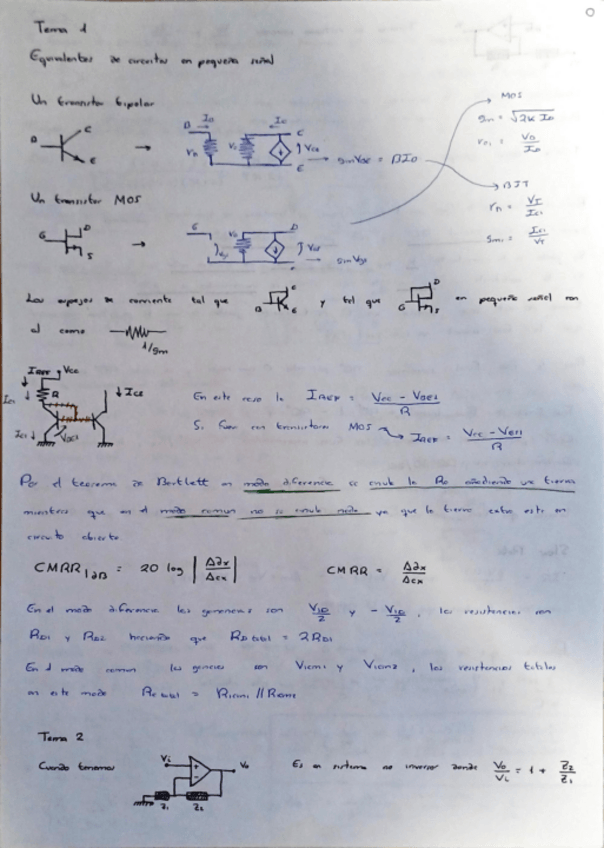 Tema 1
Equivalentes de circuitos en pequeña señal
Un transistor bipolar
B C E → B Ib Ic C E gmVBE = βIb
MOS
gm = √2K ID
BJT
gm1 = IC1/VT
Un transistor MOS
G D S → G D gmVgs
Los espejos de corriente tal que B C E y tal que G D S en pequeña señal son
al como 1/gm
IREF VCC
R
IC1 IC2
VBE1
En este caso la IREF = (VCC - VBE1)/R
Si fuera con transistores MOS → IREF =
Por el teorema de Bartlett en modo diferencia se anula la Re añadiendo una tierra
mientras que en el modo comun no se anula nada ya que la tierra entre está en
circuito abierto
CMRR|dB = 20 log |Adx/Acx| CMRR = Adx/Acx
En el modo diferencia las ganancias son VID/2 y -VID/2, las resistencias son
RD1 y RD2 haciendo que RD total = 2RD1
En el modo comun las son VICM1 y VICM2, las resistencias totales
en este modo Re total =
Tema 2
Cuando tenemos Vi Vo Z1 Z2 Es un sistema no inversor donde Vo/Vi = 1 + Z2/Z1